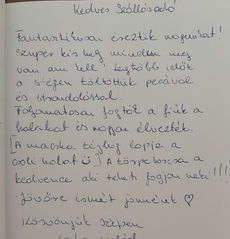 Kedves Szállásadó
Fantasztikusan éreztük magunkat!
Szuper kis hely minden meg
van ami kell. Legtöbb időt
a stégen töltöttük pecával
és strandolással.
Folyamatosan fogtak a fiúk a
halakat és nagyon élvezték.
[A macska tényleg lopja a
csali halat ☺] A törpeharcsa a
kedvence aki teheti fogjon neki!!!
Jövőre ismét jövünk ♡
Köszönjük szépen